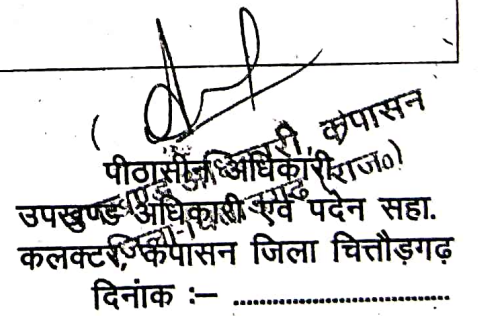 (
पीठासीन अधिकारी
उपखण्ड अधिकारी एवं पदेन सहा.
कलक्टर, कपासन जिला चित्तौड़गढ़
दिनांक :– ...............................
उपखण्ड अधिकारी, कपासन
जिला-चित्तौड़गढ़ (राज०)